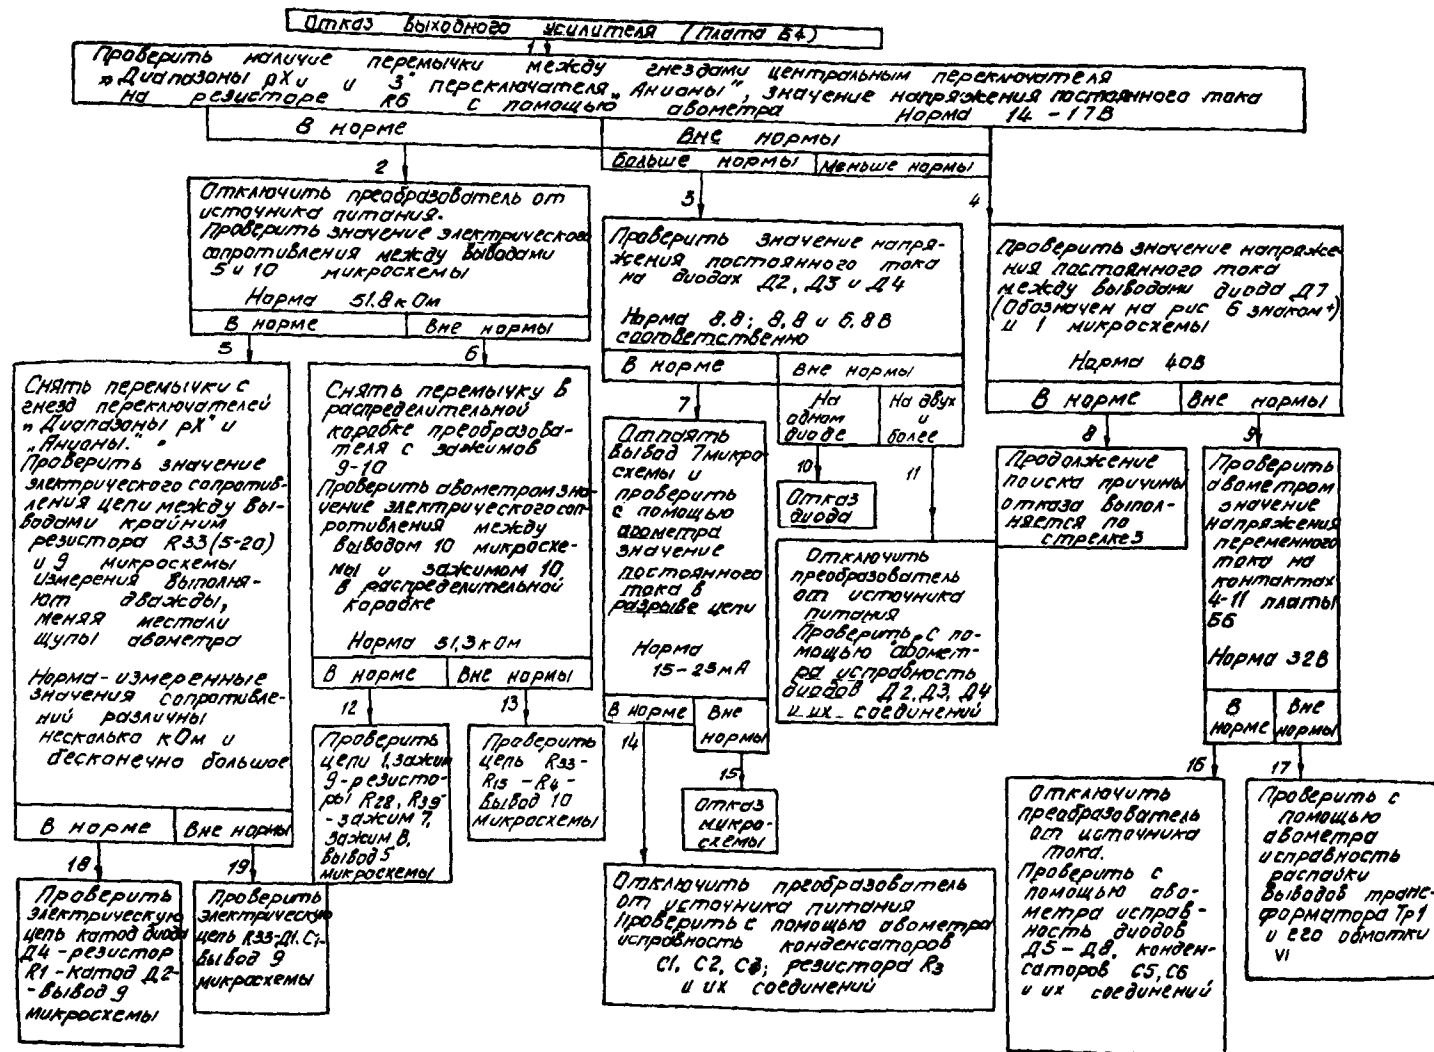 Отказ выходного усилителя (плата Б4)
1
Проверить наличие перемычки между гнездами центральным переключателя
„Диапазоны рХ и и 3" переключателя „Анионы", значение напряжения постоянного тока
на резисторе R6 с помощью авометра Норма 14 - 17В
В норме
Вне нормы
больше нормы
меньше нормы
2
Отключить преобразователь от
источника питания.
Проверить значение электрического
сопротивления между выводами
5 и 10 микросхемы
Норма 51.8 кОм
В норме
Вне нормы
3
Проверить значение напря-
жения постоянного тока
на диодах Д2, Д3 и Д4
Норма 8.8; 8,8 и 6.8 В
соответственно
В норме
Вне нормы
На
одном
диоде
На двух
и
более
4
Проверить значение напряже-
ния постоянного тока
между выводами диода Д7
(Обозначен на рис 6 знаком +)
и 1 микросхемы
Норма 40В
В норме
Вне нормы
5
Снять перемычки с
гнезд переключателей
„Диапазоны рХ" и
„Анионы."
Проверить значение
электрического сопротив-
ления цепи между вы-
водами крайним
резистора R33 (5-20)
и 9 микросхемы
измерения выполня-
ют дважды,
меняя местали
щупы авометра
Норма - измеренные
значения сопротивле-
ний различны
несколько кОм и
бесконечно большое
В норме
Вне нормы
6
Снять перемычку в
распределительной
коробке преобразова-
теля с зажимов
9-10
Проверить авометром зна-
чение электрического соп-
ротивления между
выводом 10 микросхе-
мы и зажимом 10,
в распределительной
коробке
Норма 51,3 кОм
В норме
Вне нормы
7
Отпаять
вывод 7 микро-
схемы и
проверить
с помощью
авометра
значение
постоянного
тока в
разрыве цепи
Норма
15-25мА
В норме
Вне
нормы
10
Отказ
диода
11
Отключить
преобразователь
от источника
питания
Проверить с по-
мощью авомет-
ра исправность
диодов Д2, Д3, Д4
и их соединений
8
Продолжение
поиска причины
отказа выпол-
няется по
стрелке 3
9
Проверить
авометром
значение
напряжения
переменного
тока на
контактах
4-11 платы
Б6
Норма 32В
В
норме
Вне
нормы
12
Проверить
цепи 1, зажим
9-резисто-
ры R28, R39-
- зажим 7,
зажим 8,
вывод 5
микросхемы
13
Проверить
цепь R33-
R15 - R4 -
вывод 10
микросхемы
14
Отключить преобразователь
от источника питания
Проверить с помощью авометра
исправность конденсаторов
С1, С2, резистора R3
и их соединений
15
Отказ
микро-
схемы
16
Отключить
преобразователь
от источника
тока.
Проверить с
помощью аво-
метра исправ-
ность диодов
Д5 - Д8, конден-
саторов С5, С6
и их соединений
17
Проверить с
помощью
авометра
исправность
распайки
выводов транс-
форматора Тр1
и его обмотки
VI
18
Проверить
электрическую
цепь катод диода
Д4 - резистор
R1 - катод Д2-
- вывод 9
микросхемы
19
Проверить
электрическую
цепь R33-Д1, С1-
вывод 9
микросхемы